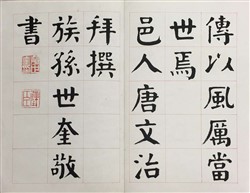 傳以風厲當
世焉
邑人唐文治
拜撰
族孫世奎敬
書